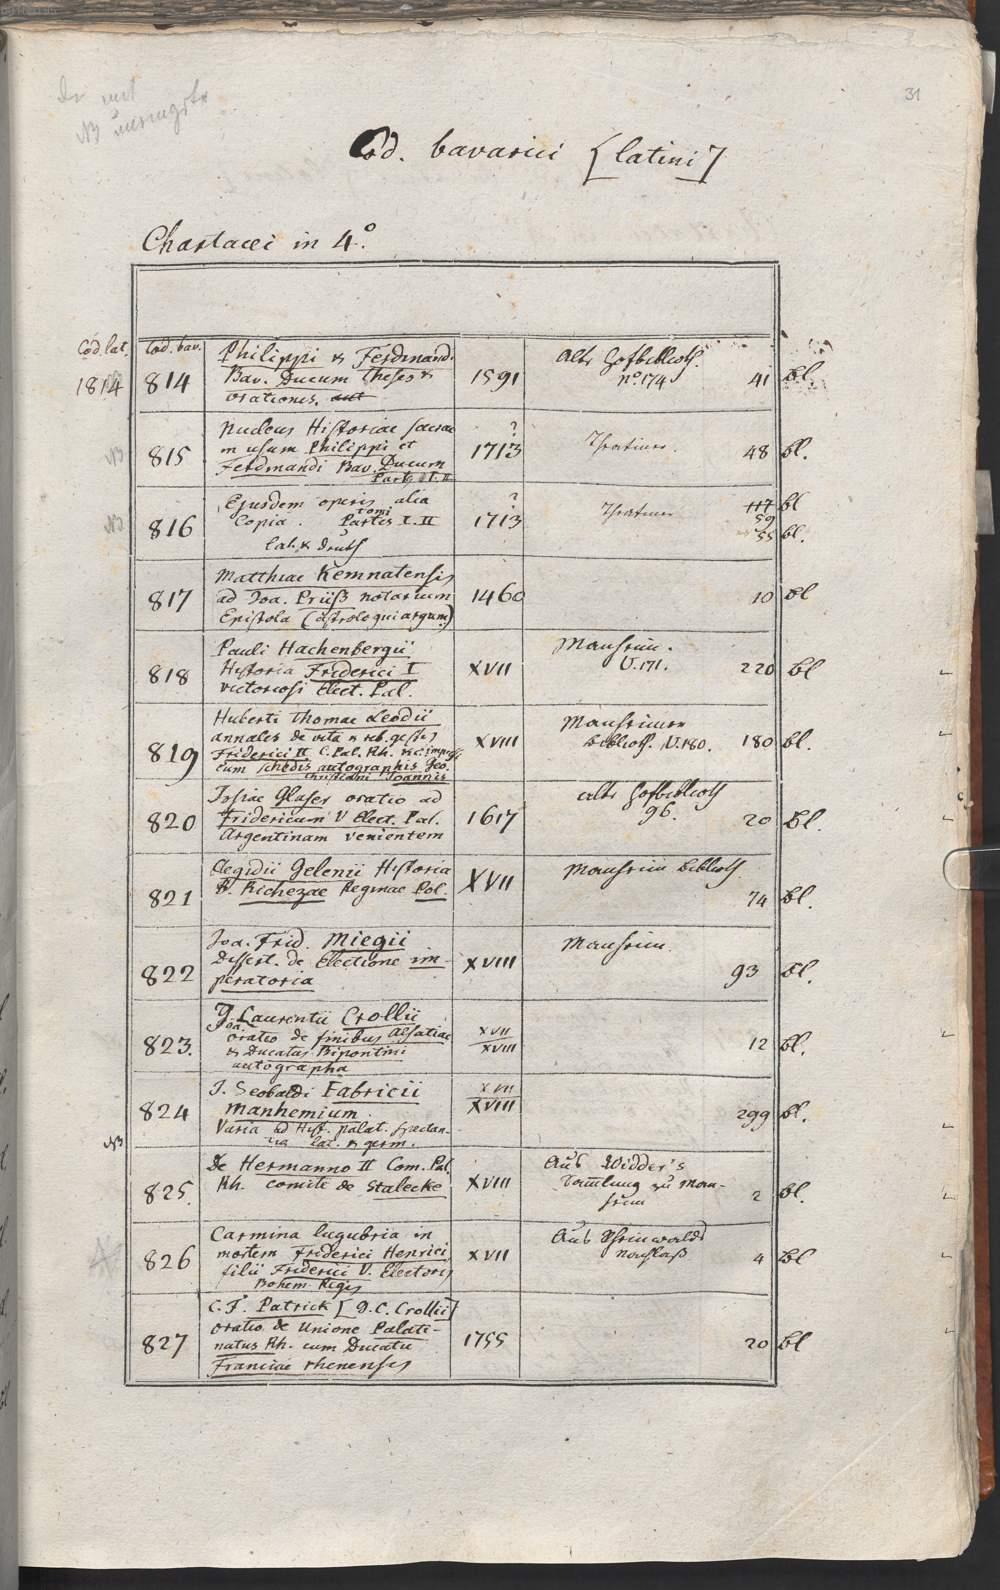 31
Cod. bavarici [latini]
Chartacei in 4.º
Cod. lat. Cod. bav.
1814 814 Philippi & Ferdinandi Bav. Ducum Theses & orationes. 1591 Alte Hofbiblioth. nº. 174 41 bl.
NB 815 Nucleus Historiae sacrae in usum Philippi et Ferdinandi Bav. Ducum Partes I. II. 1713? Theatiner. 48 bl.
NB 816 Ejusdem operis alia Copia. tomi Partes I. II lat. & deutsch 1713? Theatiner 117 bl 59 55 bl.
817 Matthiae Kemnatensis ad Joa. Prüß notarium Epistola (astrologui argum.) 1460 10 bl
818 Pauli Hachenbergii Historia Friderici I victoriosi Elect. Pal. XVII Manheim. N. 171. 220 bl
819 Huberti Thomae Leodii annales de vita & reb. gestis Friderici II C. Pal. Rh. cum schedis autographis Geo. Christiani Joannis XVIII Manheimer Biblioth. N. 180. 180 bl.
820 Josiae Glaser oratio ad Fridericum V Elect. Pal. Argentinam venientem 1617 alte Hofbiblioth 96. 20 bl.
821 Aegidii Gelenii Historia B. Richezae Reginae Pol. XVII Manheim Biblioth 74 bl.
822 Joa. Frid. Miegii Dissert. de Electione imperatoria XVIII Manheim. 93 bl.
823. Joa. Laurentii Crollii oratio de finibus Alsatiae & Ducatus Bipontini autographa XVII XVIII 12 bl.
824 J. Seobaldi Fabricii Manhemium. Varia ad Hist. palat. spectantia lat. & germ. XVII XVIII 299 bl.
NB
825. De Hermanno II Com. Pal. Rh. comite de Stalecke XVIII Aus Widder's Samlung zu Manheim 2 bl.
826 Carmina lugubria in mortem Friderici Henrici filii Friderici V. Electoris Bohem. Regis XVII Aus Nachlaß 4 bl
827 C. F. Patrick [D. C. Crollii] oratio de Unione Palatinatus Rh. cum Ducatu Franciae rhenensis 1755 20 bl